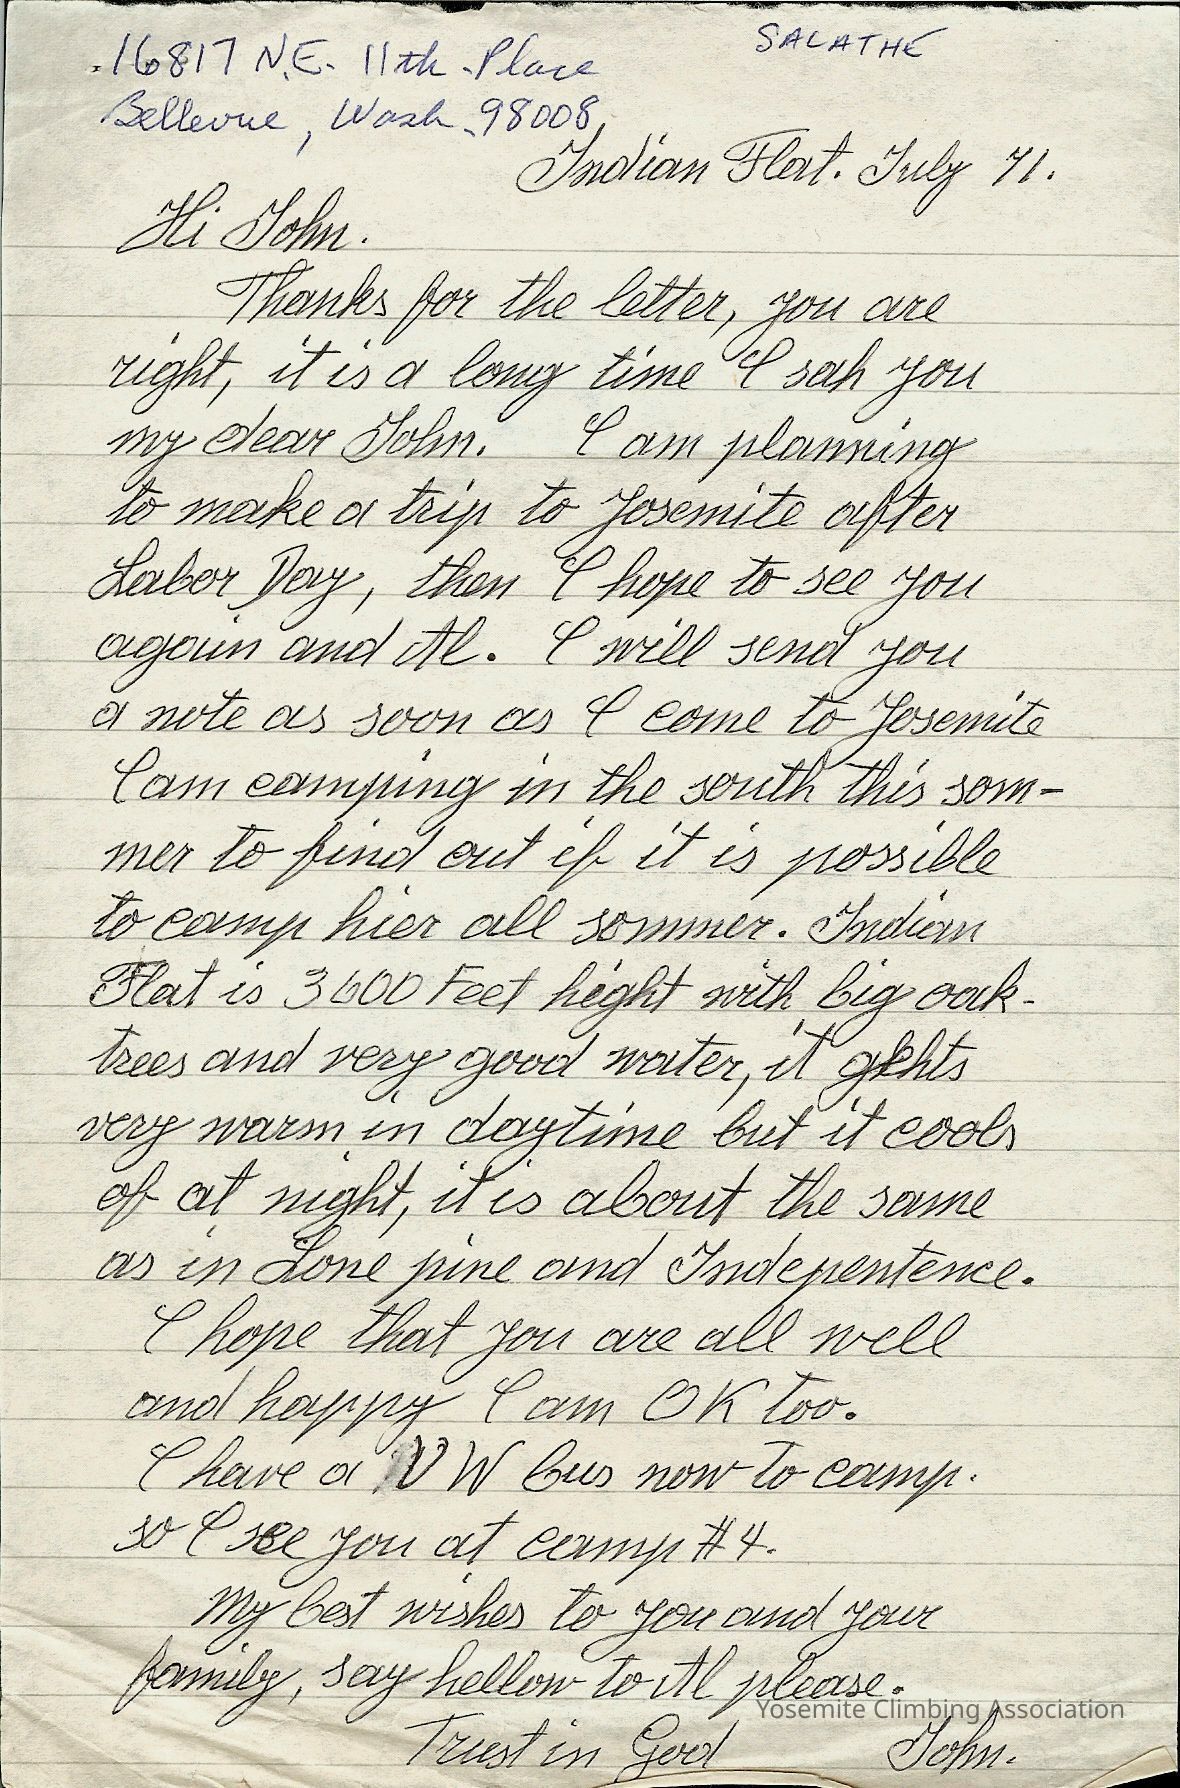 16817 N.E. 11th Place
SALATHÉ
Bellevue, Wash. 98008
Indian Flat. July 71.
Hi John.
Thanks for the letter, you are
right, it is a long time I sah you
my dear John. I am planning
to make a trip to Yosemite after
Labor Day, then I hope to see you
again and Al. I will send you
a note as soon as I come to Yosemite
I am camping in the south this som-
mer to find out if it is possible
to camp hier all sommer. Indian
Flat is 3600 Feet hight with big oak-
trees and very good water, it gehts
very warm in daytime but it cools
of at night, it is about the same
as in Lone pine and Indepentence.
I hope that you are all well
and happy I am OK too.
I have a VW bus now to camp.
so I see you at camp #4.
My best wishes to you and your
family, say hellow to Al please.
Yosemite Climbing Association
Trust in God John.